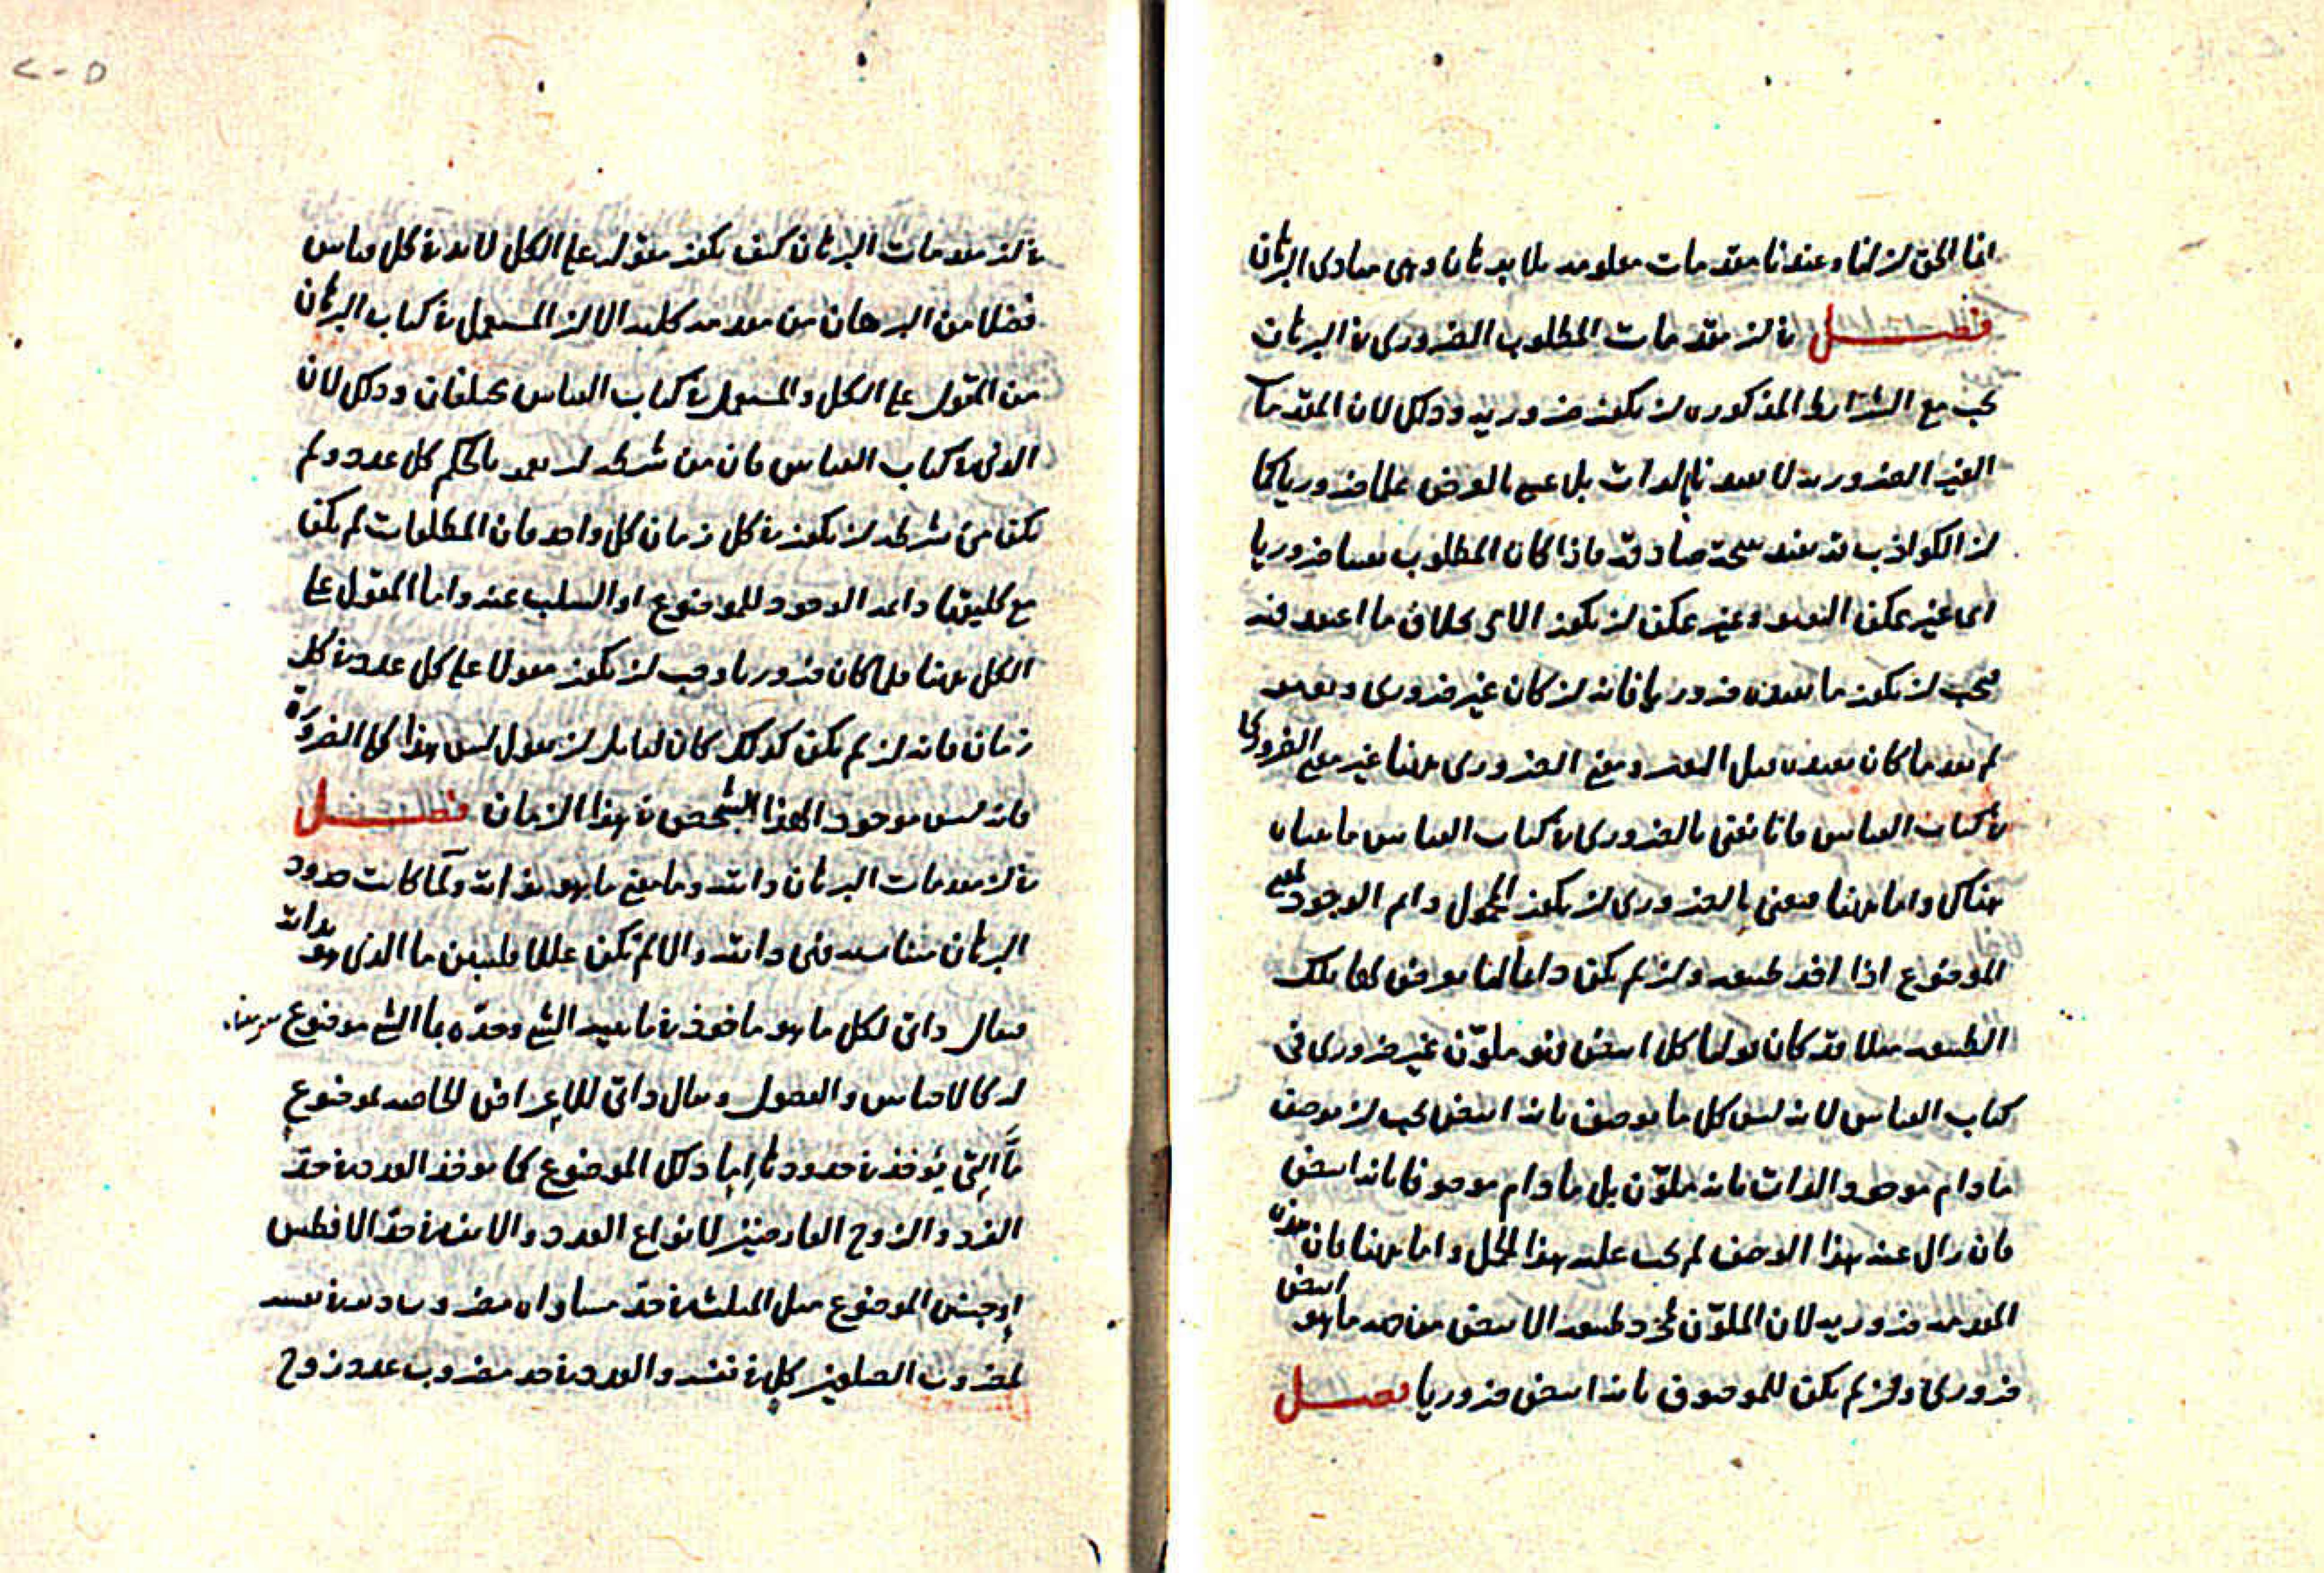 انما الحق ان لنا وعندنا مقدمات معلومة بلا برهان وهى مبادى البرهان
فصل فى ان مقدمات المطلوب الضرورى فى البرهان
يجب مع الشرائط المذكورة ان يكون ضرورية وذلك لان المقدمات
الغير الضرورية لا تفيد بالذات بل عسى بالعرض علما ضروريا كما
ان الكواذب قد تفيد نتيجة صادقة فاذا كان المطلوب يقينا ضروريا
اى غير ممكن التغير وغير ممكن ان يكون الامر بخلاف ما اعتقد فيه
فيجب ان يكون ما يفيده ضروريا فانه ان كان غير ضرورى وتغير
لم يفد ما كان يفيده قبل التغير ومعنى الضرورى ههنا غير معنى الضرورى
فى كتاب القياس فانا نعنى بالضرورى فى كتاب القياس ما بيناه
هناك واما ههنا فنعنى بالضرورى ان يكون المحمول دائم الوجود
الموضوع اذا اخذ طبيعة وان لم يكن دائما لما يعرض لها تلك
الطبيعة مثلا قد كان قولنا كل ابيض فهو ملوّن غير ضرورى فى
كتاب القياس لانه ليس كل ما يوصف بانه ابيض يجب ان يوصف
ما دام موجود الذات بانه ملوّن بل ما دام موصوفا بانه ابيض
فان زال عنه هذا الوصف لم يجب عليه هذا الحمل واما ههنا فان هذه
المقدمة ضرورية لان الملوّن لمجرد طبيعة الابيض من جهة ما هو ابيض
ضرورى وان لم يكن للموصوف بانه ابيض ضروريا فصل
فى ان مقدمات البرهان كيف يكون مقولة على الكل لا بد فى كل قياس
فضلا من البرهان من مقدمة كلية الا ان المستعمل فى كتاب البرهان
من المقول على الكل والمستعمل فى كتاب القياس مختلفان وذلك لان
الذى فى كتاب القياس كان من شرطه ان يعم بالحكم كل عدد ولم
يكن من شرطه ان يكون فى كل زمان كل واحد فان المطلقات لم يكن
مع كليتها دائمة الوجود للموضوع او السلب عنه واما المقول على
الكل ههنا فلما كان ضروريا وجب ان يكون مقولا على كل عدد فى كل
زمان فانه ان لم يكن كذلك كان لقايل ان يقول ليس هذا كما الضرورة
فانه ليس موجودا لهذا الشخص فى هذا الزمان فصل
فى ان مقدمات البرهان ذاتية وما معنى ما هو بذاته ولما كانت حدود
البرهان مناسبة فهى ذاتية والا لم تكن عللا فلنبين ما الذى هو بذاته
فيقال ذاتى لكل ما هو ماخوذ فى ماهية الشى وحدّه بما الشى موضوع
له كالاجناس والفصول ويقال ذاتى للاعراض الخاصة لموضوع
مّا التى يؤخذ فى حدودها اما ذلك الموضوع كما يوخذ العدد فى حدّ
الفرد والزوج العارضين لانواع العدد والانف فى حدّ الافطس
او جنس الموضوع مثل المثلث فى حدّ مساواة مضروب وتره فى نفسه
لمضروب الضلعين كل فى نفسه والعدد فى حد مضروب عدد زوج